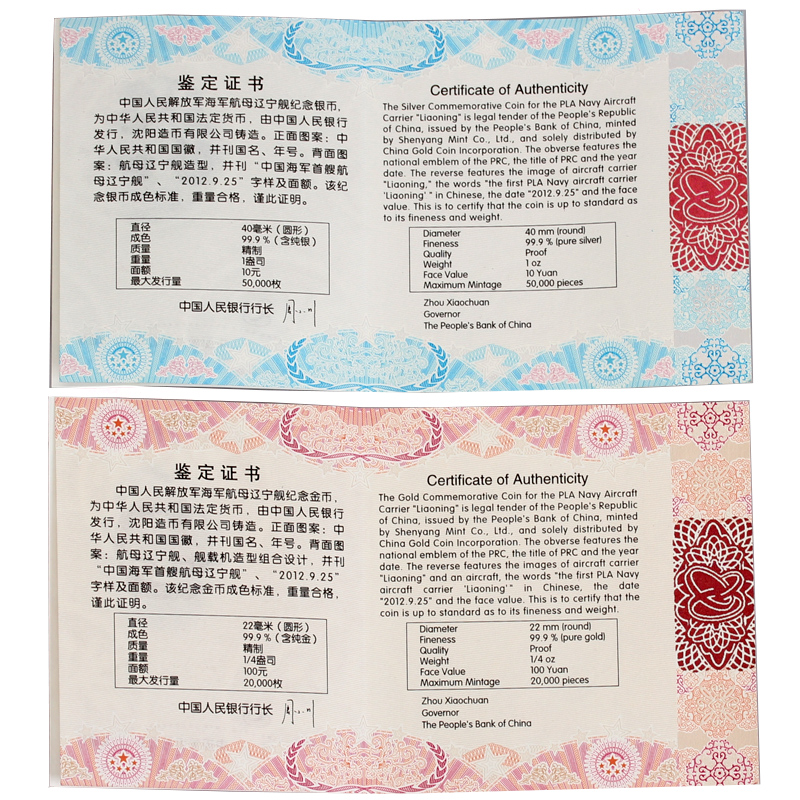 鉴定证书
中国人民解放军海军航母辽宁舰纪念银币，
为中华人民共和国法定货币，由中国人民银行
发行，沈阳造币有限公司铸造。正面图案：中
华人民共和国国徽，并刊国名、年号。背面图
案：航母辽宁舰造型，并刊“中国海军首艘航
母辽宁舰”、“2012.9.25”字样及面额。该纪
念银币成色标准，重量合格，谨此证明。
直径 40毫米（圆形）
成色 99.9％（含纯银）
质量 精制
重量 1盎司
面额 10元
最大发行量 50,000枚
中国人民银行行长
Certificate of Authenticity
The Silver Commemorative Coin for the PLA Navy Aircraft
Carrier "Liaoning" is legal tender of the People's Republic
of China, issued by the People's Bank of China, minted
by Shenyang Mint Co., Ltd., and solely distributed by
China Gold Coin Incorporation. The obverse features the
national emblem of the PRC, the title of PRC and the year
date. The reverse features the image of aircraft carrier
"Liaoning," the words "the first PLA Navy aircraft carrier
'Liaoning' " in Chinese, the date "2012.9.25" and the face
value. This is to certify that the coin is up to standard as
to its fineness and weight.
Diameter 40 mm (round)
Fineness 99.9 % (pure silver)
Quality Proof
Weight 1 oz
Face Value 10 Yuan
Maximum Mintage 50,000 pieces
Zhou Xiaochuan
Governor
The People's Bank of China
鉴定证书
中国人民解放军海军航母辽宁舰纪念金币，
为中华人民共和国法定货币，由中国人民银行
发行，沈阳造币有限公司铸造。正面图案：中
华人民共和国国徽，并刊国名、年号。背面图
案：航母辽宁舰、舰载机造型组合设计，并刊
“中国海军首艘航母辽宁舰”、“2012.9.25”
字样及面额。该纪念金币成色标准，重量合格，
谨此证明。
直径 22毫米（圆形）
成色 99.9％（含纯金）
质量 精制
重量 1/4盎司
面额 100元
最大发行量 20,000枚
中国人民银行行长
Certificate of Authenticity
The Gold Commemorative Coin for the PLA Navy Aircraft
Carrier "Liaoning" is legal tender of the People's Republic
of China, issued by the People's Bank of China, minted
by Shenyang Mint Co., Ltd., and solely distributed by
China Gold Coin Incorporation. The obverse features the
national emblem of the PRC, the title of PRC and the year
date. The reverse features the images of aircraft carrier
"Liaoning" and an aircraft, the words "the first PLA Navy
aircraft carrier 'Liaoning' " in Chinese, the date
"2012.9.25" and the face value. This is to certify that the
coin is up to standard as to its fineness and weight.
Diameter 22 mm (round)
Fineness 99.9 % (pure gold)
Quality Proof
Weight 1/4 oz
Face Value 100 Yuan
Maximum Mintage 20,000 pieces
Zhou Xiaochuan
Governor
The People's Bank of China